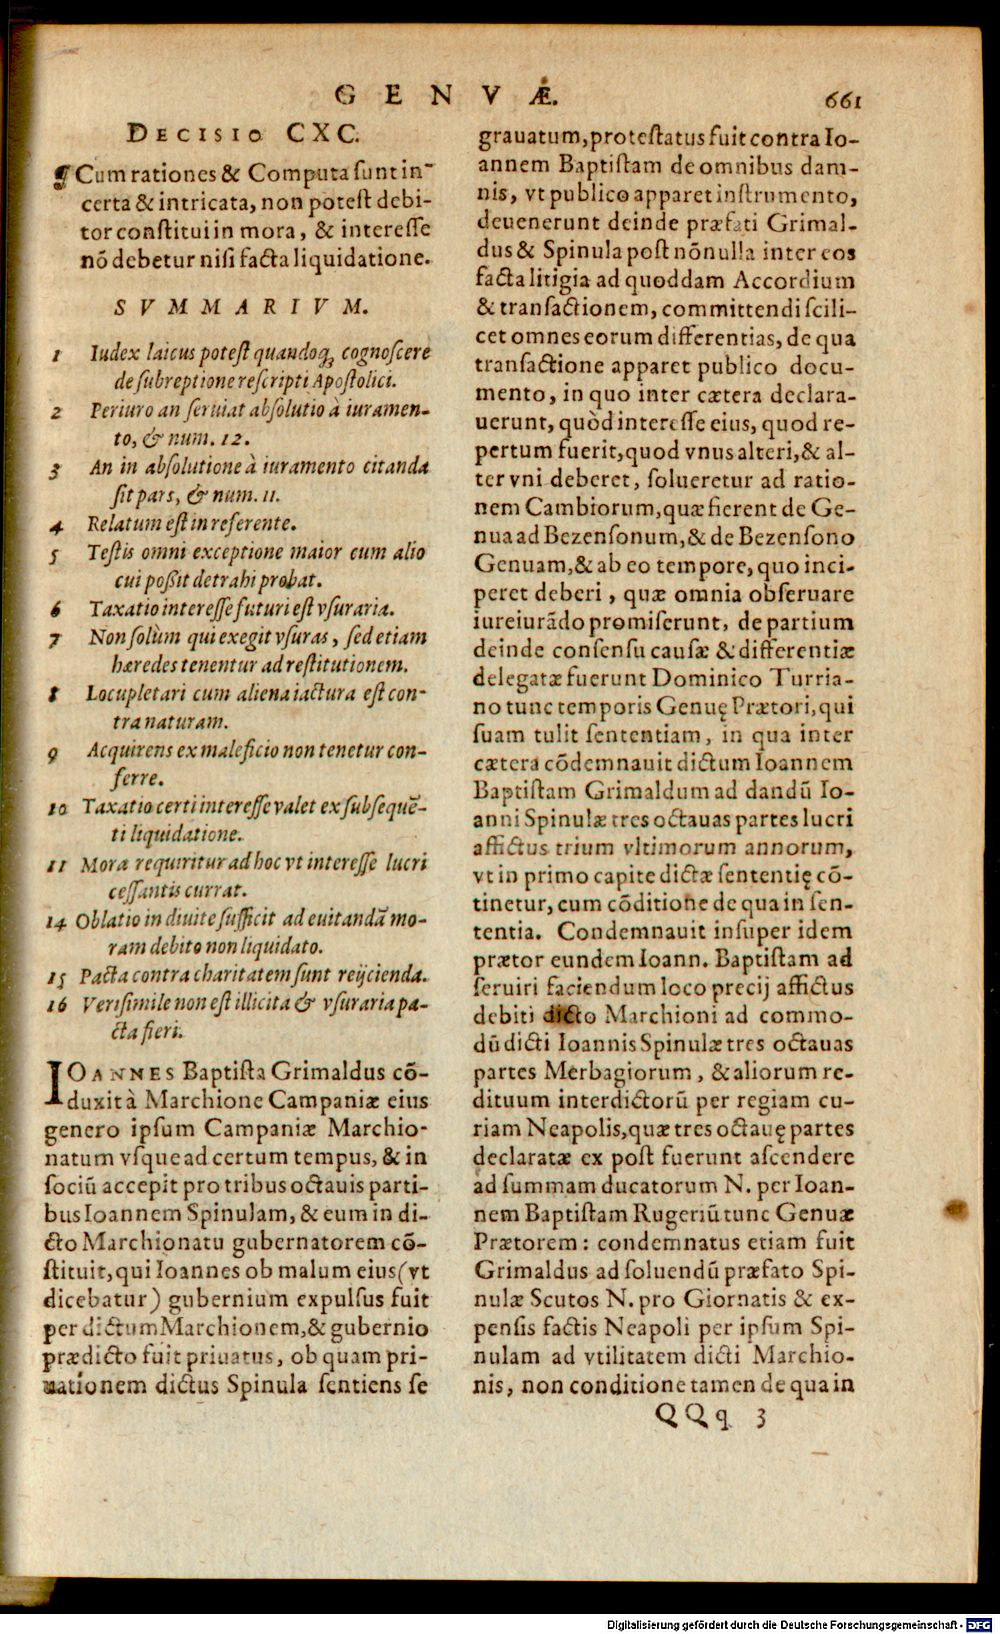 GENVÆ.
661
DECISIO CXC.
¶ Cum rationes & Computa sunt in-
certa & intricata, non potest debi-
tor constitui in mora, & interesse
nõ debetur nisi facta liquidatione.
SVMMARIVM.
1 Iudex laicus potest quandoq; cognoscere
de subreptione rescripti Apostolici.
2 Periuro an seruiat absolutio à iuramen-
to, & num. 12.
3 An in absolutione à iuramento citanda
sit pars, & num. 11.
4 Relatum est in referente.
5 Testis omni exceptione maior cum alio
cui possit detrahi probat.
6 Taxatio interesse futuri est vsuraria.
7 Non solùm qui exegit vsuras, sed etiam
hæredes tenentur ad restitutionem.
8 Locupletari cum aliena iactura est con-
tra naturam.
9 Acquirens ex maleficio non tenetur con-
ferre.
10 Taxatio certi interesse valet ex subsequẽ-
ti liquidatione.
11 Mora requiritur ad hoc vt interesse lucri
cessantis currat.
14 Oblatio in diuite sufficit ad euitandã mo-
ram debito non liquidato.
15 Pacta contra charitatem sunt reijcienda.
16 Verisimile non est illicita & vsuraria pa-
cta fieri.
IOANNES Baptista Grimaldus cõ-
duxit à Marchione Campaniæ eius
genero ipsum Campaniæ Marchio-
natum vsque ad certum tempus, & in
sociũ accepit pro tribus octauis parti-
bus Ioannem Spinulam, & eum in di-
cto Marchionatu gubernatorem cõ-
stituit, qui Ioannes ob malum eius (vt
dicebatur) gubernium expulsus fuit
per dictum Marchionem, & gubernio
prædicto fuit priuatus, ob quam pri-
uationem dictus Spinula sentiens se
grauatum, protestatus fuit contra Io-
annem Baptistam de omnibus dam-
nis, vt publico apparet instrumento,
deuenerunt deinde præfati Grimal-
dus & Spinula post nõnulla inter eos
facta litigia ad quoddam Accordium
& transactionem, committendi scili-
cet omnes eorum differentias, de qua
transactione apparet publico docu-
mento, in quo inter cætera declara-
uerunt, quòd interesse eius, quod re-
pertum fuerit, quod vnus alteri, & al-
ter vni deberet, solueretur ad ratio-
nem Cambiorum, quæ fierent de Ge-
nua ad Bezensonum, & de Bezensono
Genuam, & ab eo tempore, quo inci-
peret deberi, quæ omnia obseruare
iureiurãdo promiserunt, de partium
deinde consensu causæ & differentiæ
delegatæ fuerunt Dominico Turria-
no tunc temporis Genuę Prætori, qui
suam tulit sententiam, in qua inter
cætera cõdemnauit dictum Ioannem
Baptistam Grimaldum ad dandũ Io-
anni Spinulæ tres octauas partes lucri
affictus trium vltimorum annorum,
vt in primo capite dictæ sententię cõ-
tinetur, cum cõditione de qua in sen-
tentia. Condemnauit insuper idem
prætor eundem Ioann. Baptistam ad
seruiri faciendum loco precij affictus
debiti dicto Marchioni ad commo-
dũ dicti Ioannis Spinulæ tres octauas
partes Merbagiorum, & aliorum re-
dituum interdictorũ per regiam cu-
riam Neapolis, quæ tres octauę partes
declaratæ ex post fuerunt ascendere
ad summam ducatorum N. per Ioan-
nem Baptistam Rugeriũ tunc Genuæ
Prætorem: condemnatus etiam fuit
Grimaldus ad soluendũ præfato Spi-
nulæ Scutos N. pro Giornatis & ex-
pensis factis Neapoli per ipsum Spi-
nulam ad vtilitatem dicti Marchio-
nis, non conditione tamen de qua in
QQq 3
Digitalisierung gefördert durch die Deutsche Forschungsgemeinschaft - DFG